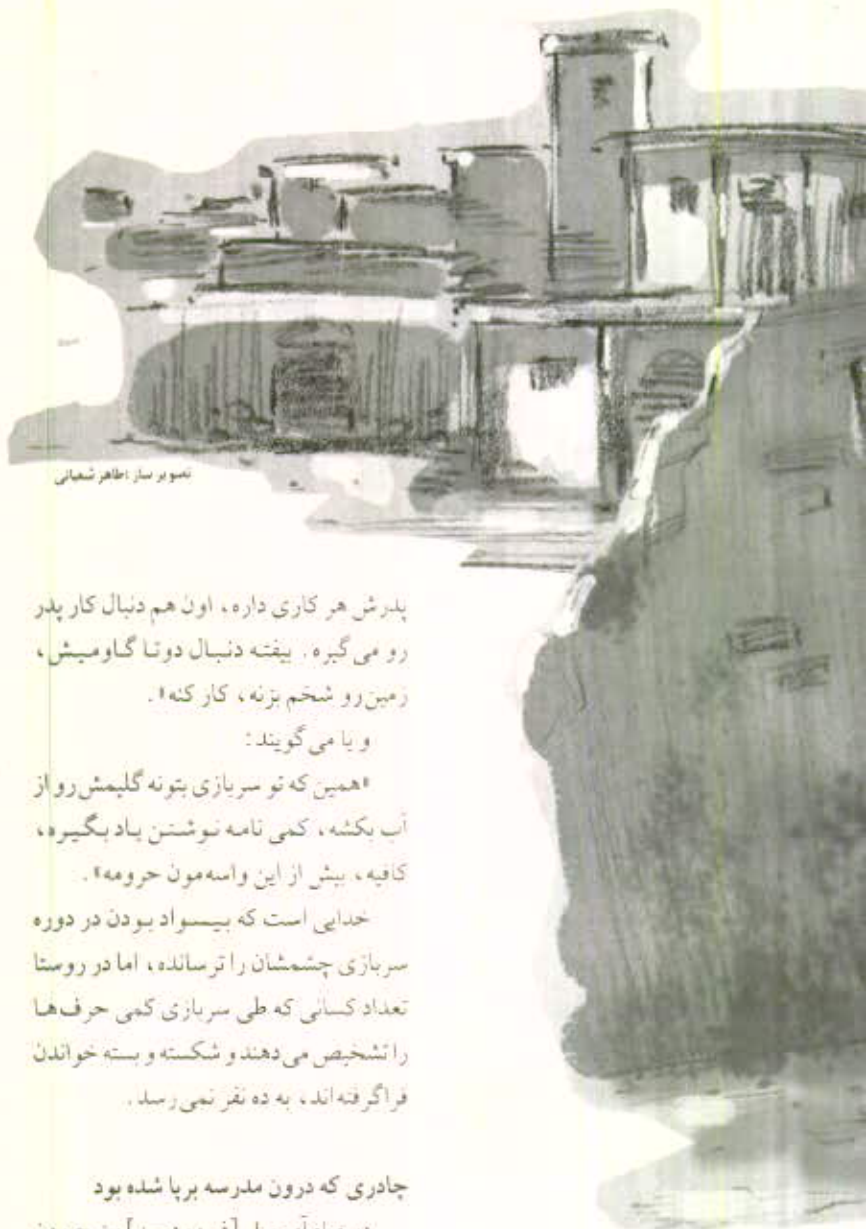 تصویر ساز: طاهر شعبانی
پدرش هر کاری داره، اون هم دنبال کار پدر
رو می‌گیره. بیفته دنبال دوتا گاومیش،
زمین‌رو شخم بزنه، کار کنه».
و یا می‌گویند:
«همین که تو سربازی بتونه گلیمش‌رو از
آب بکشه، کمی نامه نوشتن یاد بگیره،
کافیه، بیش از این واسه‌مون حرومه».
خدایی است که بیسواد بودن در دوره
سربازی چشمشان را ترسانده، اما در روستا
تعداد کسانی که طی سربازی کمی حرف‌ها
را تشخیص می‌دهند و شکسته و بسته خواندن
فراگرفته‌اند، به ده نفر نمی‌رسد.
چادری که درون مدرسه برپا شده بود